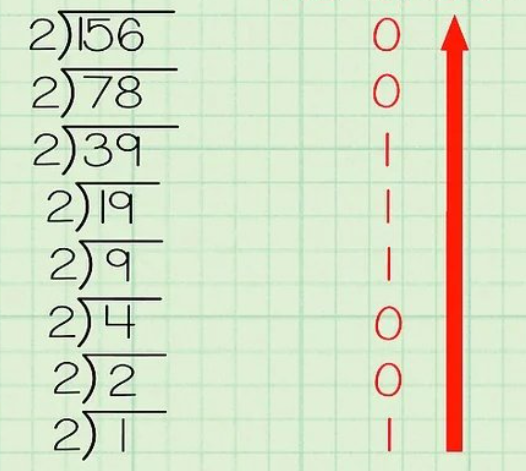 2)156 0
2)78 0
2)39 1
2)19 1
2)9 1
2)4 0
2)2 0
2)1 1